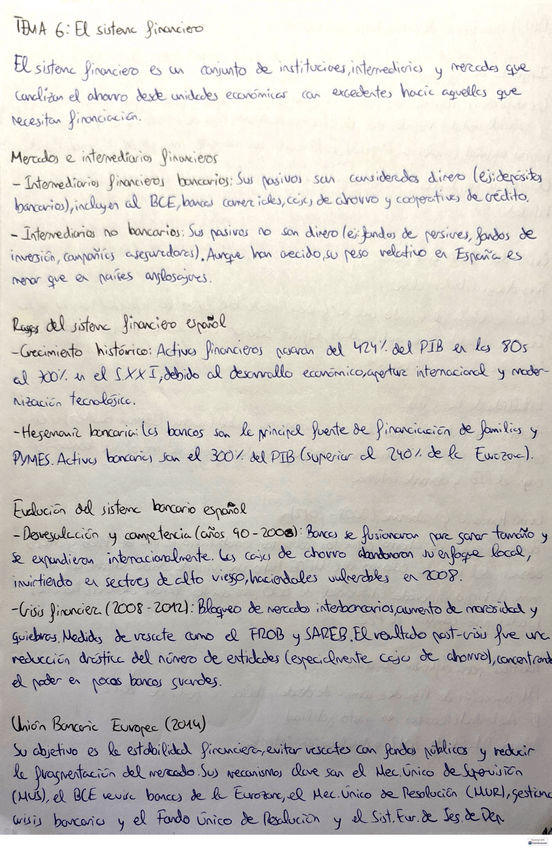 TEMA 6: El sistema financiero
El sistema financiero es un conjunto de instituciones, intermediarios y mercados que
canalizan el ahorro desde unidades económicas con excedentes hacia aquellas que
necesitan financiación.
Mercados e intermediarios financieros
- Intermediarios financieros bancarios: Sus pasivos son considerados dinero (ej: depósitos
bancarios), incluyen al BCE, bancos comerciales, cajas de ahorro y cooperativas de crédito.
- Intermediarios no bancarios: Sus pasivos no son dinero (ej: fondos de pensiones, fondos de
inversión, compañías aseguradoras). Aunque han crecido, su peso relativo en España es
menor que en países anglosajones.
Rasgos del sistema financiero español
- Crecimiento histórico: Activos financieros pasaron del 424% del PIB en los 80s
al 700% en el S.XXI, debido al desarrollo económico, apertura internacional y moder-
nización tecnológica.
- Hegemonía bancaria: Los bancos son la principal fuente de financiación de familias y
PYMES. Activos bancarios son el 300% del PIB (superior al 240% de la Eurozona).
Evolución del sistema bancario español
- Desregulación y competencia (años 90-2008): Bancos se fusionaron para ganar tamaño y
se expandieron internacionalmente. Las cajas de ahorro abandonaron su enfoque local,
invirtiendo en sectores de alto riesgo, haciéndoles vulnerables en 2008.
- Crisis financiera (2008-2012): Bloqueo de mercados interbancarios, aumento de morosidad y
quiebras. Medidas de rescate como el FROB y SAREB. El resultado post-crisis fue una
reducción drástica del número de entidades (especialmente cajas de ahorro), concentrando
el poder en pocos bancos grandes.
Unión Bancaria Europea (2014)
Su objetivo es la estabilidad financiera, evitar rescates con fondos públicos y reducir
la fragmentación del mercado. Sus mecanismos clave son el Mec. Único de Supervisión
(MUS), el BCE revisa bancos de la Eurozona, el Mec. Único de Resolución (MUR), gestiona
crisis bancarias y el Fondo Único de Resolución y el Sist. Eur. de Seg de Dep.